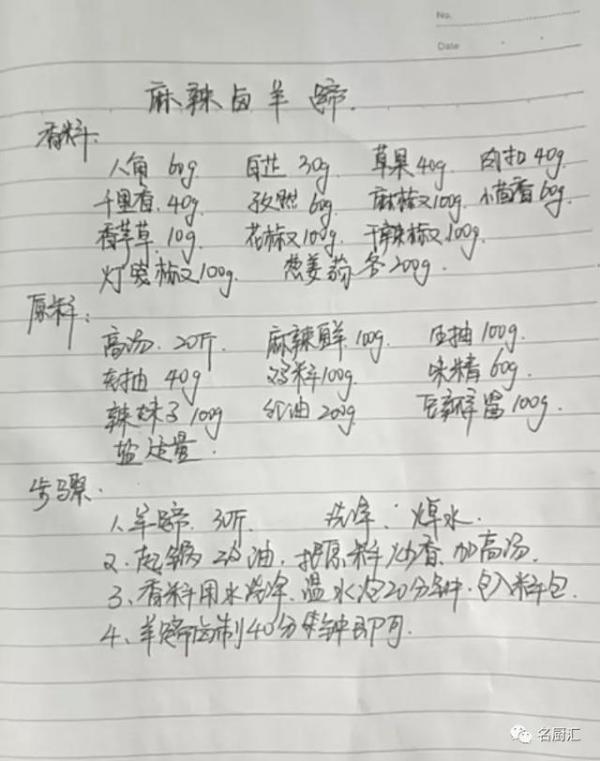 No.
Date
麻辣卤羊蹄.
香料:
八角 60g. 白芷 30g 草果 40g. 肉扣 40g.
千里香. 40g. 孜然 60g. 麻椒 100g. 小茴香 60g.
香芋草. 10g. 花椒 100g. 干辣椒 100g.
灯笼椒 100g. 葱姜蒜 各 200g.
原料:
高汤. 20斤. 麻辣鲜. 100g. 生抽 100g.
老抽 40g 鸡料 100g. 味精 60g.
辣妹子 100g 红油 200g 豆瓣酱 100g.
盐 适量.
步骤.
1. 羊蹄. 30斤. 洗净. 焯水.
2. 起锅 油, 把原料炒香. 加高汤.
3、香料用水洗净. 温水泡20分钟. 包入料包.
4、羊蹄卤制40分钟即可.
名厨汇